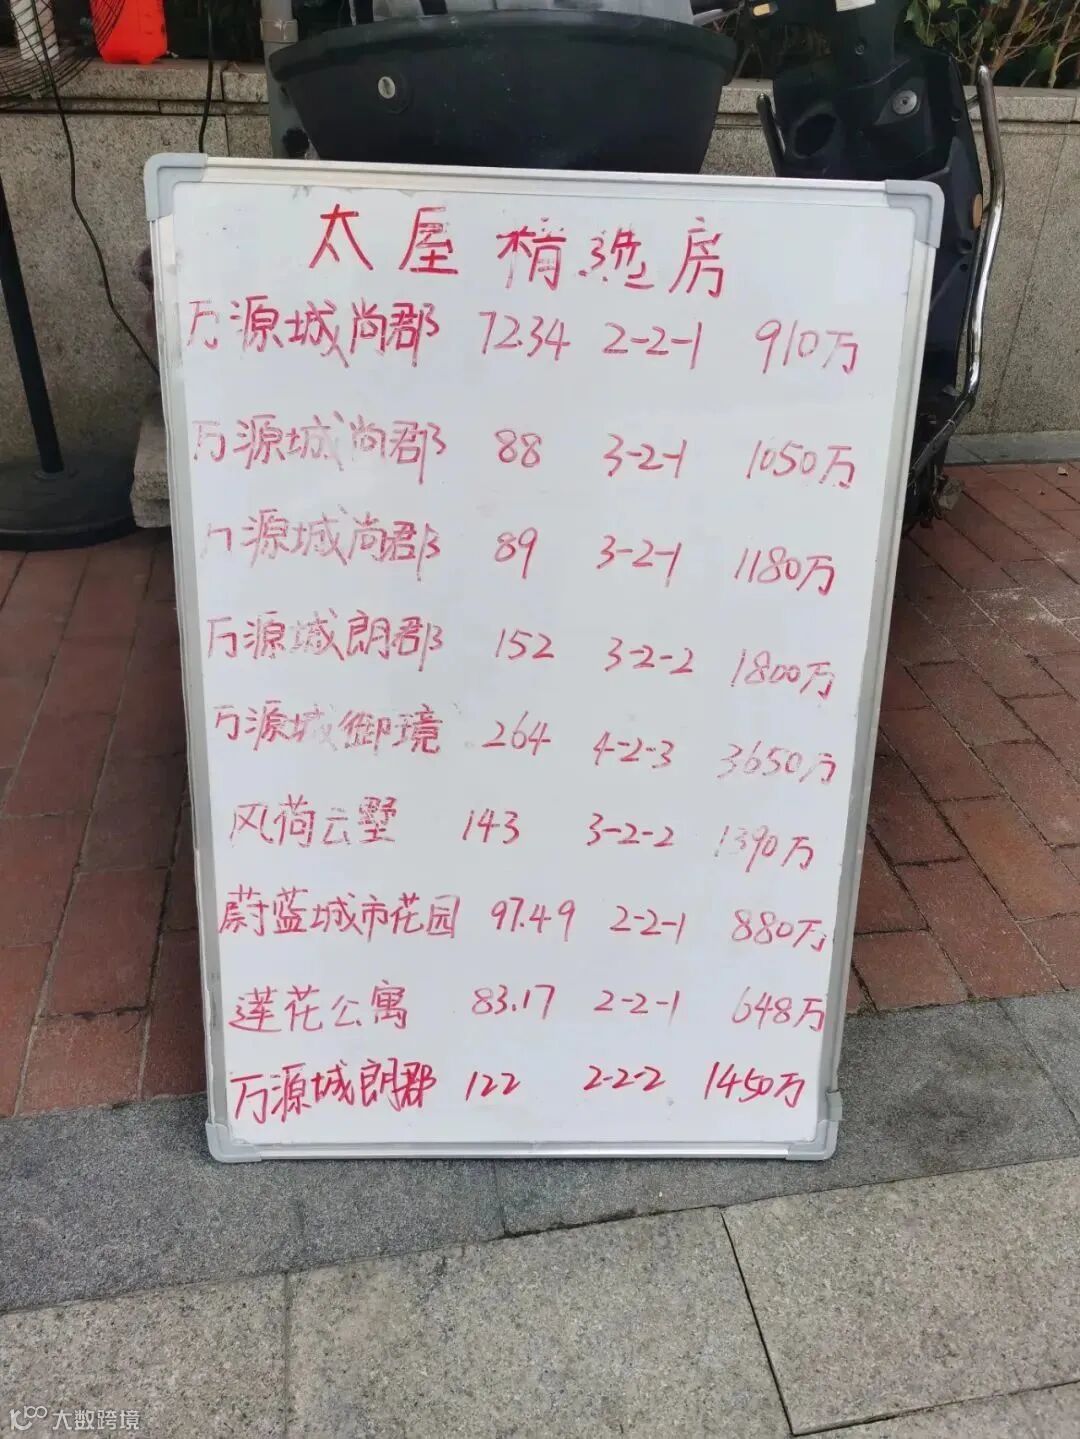 太屋 精选房
万源城尚郡 72.34 2-2-1 910万
万源城尚郡 88 3-2-1 1050万
万源城尚郡 89 3-2-1 1180万
万源城朗郡 152 3-2-2 1800万
万源城御境 264 4-2-3 3650万
风荷云墅 143 3-2-2 1390万
蔚蓝城市花园 97.49 2-2-1 880万
莲花公寓 83.17 2-2-1 648万
万源城朗郡 122 2-2-2 1450万
大数跨境